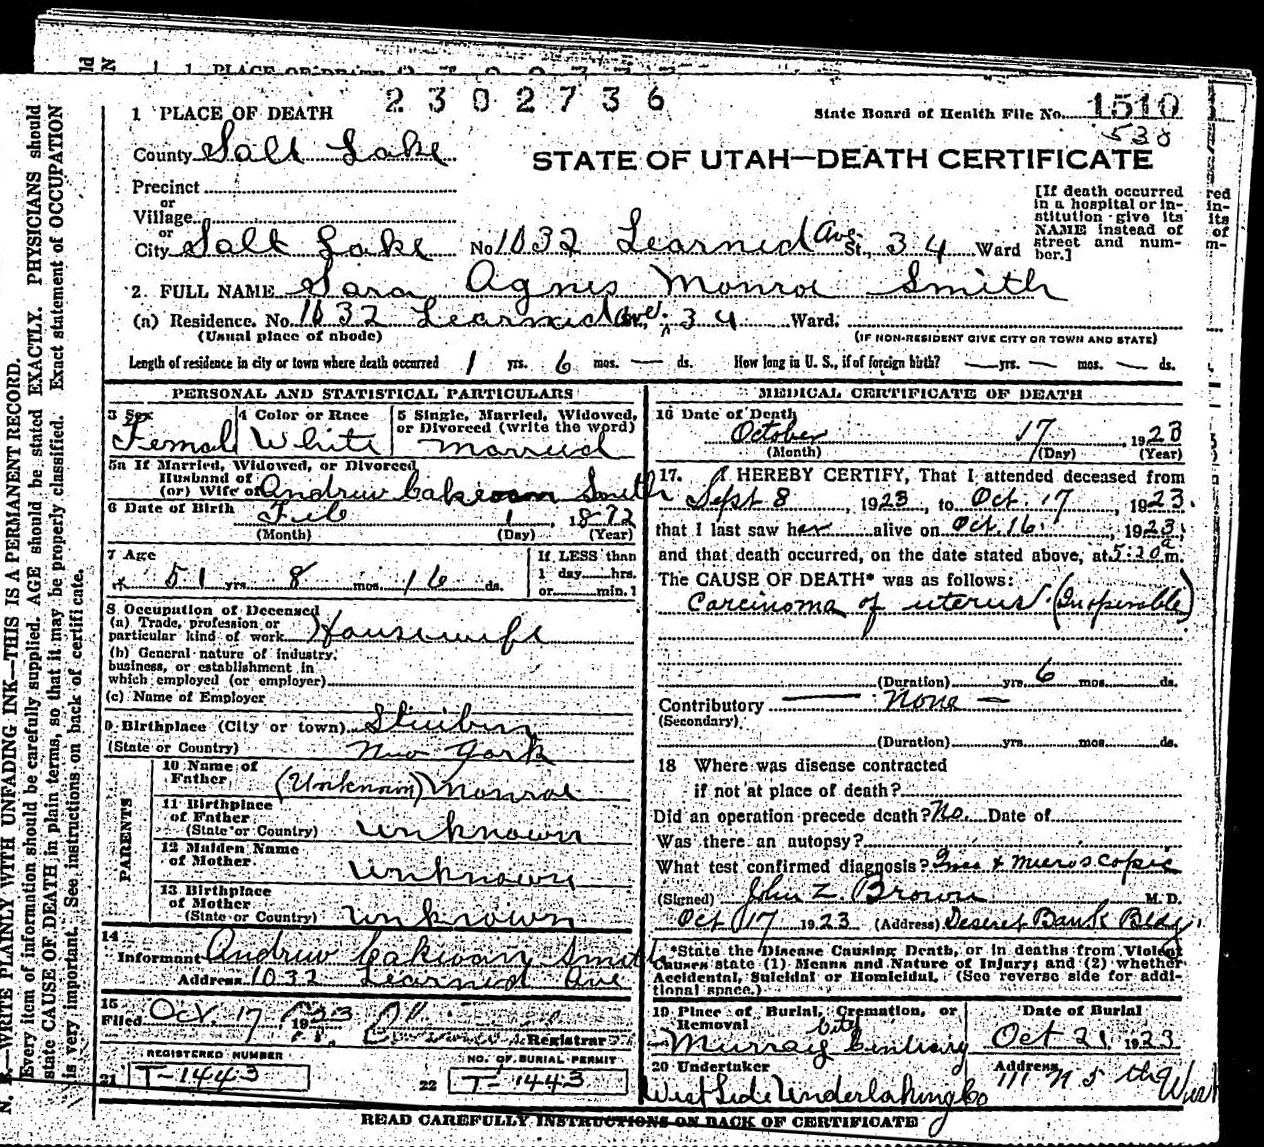 1 PLACE OF DEATH
2302736
State Board of Health File No. 1510
530
County Salt Lake
STATE OF UTAH—DEATH CERTIFICATE
Precinct
or
Village
or
City Salt Lake No. 1032 Learned Ave St., 34 Ward
[If death occurred in a hospital or institution give its NAME instead of street and number.]
2. FULL NAME Sara Agnes Monroe Smith
(a) Residence. No. 1032 Learned Ave. 34 Ward.
(Usual place of abode) (IF NON-RESIDENT GIVE CITY OR TOWN AND STATE)
Length of residence in city or town where death occurred 1 yrs. 6 mos. — ds. How long in U. S., if of foreign birth? — yrs. — mos. — ds.
PERSONAL AND STATISTICAL PARTICULARS
3 Sex 4 Color or Race 5 Single, Married, Widowed,
or Divorced (write the word)
Female White Married
5a If Married, Widowed, or Divorced
Husband of
(or) Wife of Andrew Smith
6 Date of Birth Feb 1, 1872
(Month) (Day) (Year)
7 Age If LESS than
51 yrs. 8 mos. 16 ds. 1 day hrs.
or min.]
8 Occupation of Deceased
(a) Trade, profession or
particular kind of work Housewife
(b) General nature of industry,
business, or establishment in
which employed (or employer)
(c) Name of Employer
9 Birthplace (City or town)
(State or Country) New York
PARENTS
10 Name of
Father (Unknown) Monroe
11 Birthplace
of Father
(State or Country) Unknown
12 Maiden Name
of Mother Unknown
13 Birthplace
of Mother
(State or Country) Unknown
14
Informant Andrew Smith
Address 1032 Learned Ave
15
Filed Oct. 17 1923 Registrar
REGISTERED NUMBER NO. OF BURIAL PERMIT
21 T-1443 22 T-1443
MEDICAL CERTIFICATE OF DEATH
16 Date of Death
October 17, 1923
(Month) (Day) (Year)
17. I HEREBY CERTIFY, That I attended deceased from
Sept 8, 1923, to Oct. 17, 1923.
that I last saw her alive on Oct. 16, 1923,
and that death occurred, on the date stated above, at 5:20 a m.
The CAUSE OF DEATH* was as follows:
Carcinoma of uterus (Inoperable)
(Duration) yrs. 6 mos. ds.
Contributory — None —
(Secondary)
(Duration) yrs. mos. ds.
18 Where was disease contracted
if not at place of death?
Did an operation precede death? No. Date of
Was there an autopsy?
What test confirmed diagnosis? & microscopic
(Signed) John Z. Brown M. D.
Oct 17 1923 (Address) Deseret Bank Bldg.
*State the Disease Causing Death, or in deaths from Violent
Causes state (1) Means and Nature of Injury; and (2) whether
Accidental, Suicidal or Homicidal. (See reverse side for addi-
tional space.)
19 Place of Burial, Cremation, or Date of Burial
Removal
Murray City Cemetery Oct 21 1923
20 Undertaker Address
West Side Undertaking Co 111 N 5th West
READ CAREFULLY INSTRUCTIONS ON BACK OF CERTIFICATE
N. B.—WRITE PLAINLY WITH UNFADING INK—THIS IS A PERMANENT RECORD.
Every item of information should be carefully supplied. AGE should be stated EXACTLY. PHYSICIANS should
state CAUSE OF DEATH in plain terms, so that it may be properly classified. Exact statement of OCCUPATION
is very important. See instructions on back of certificate.